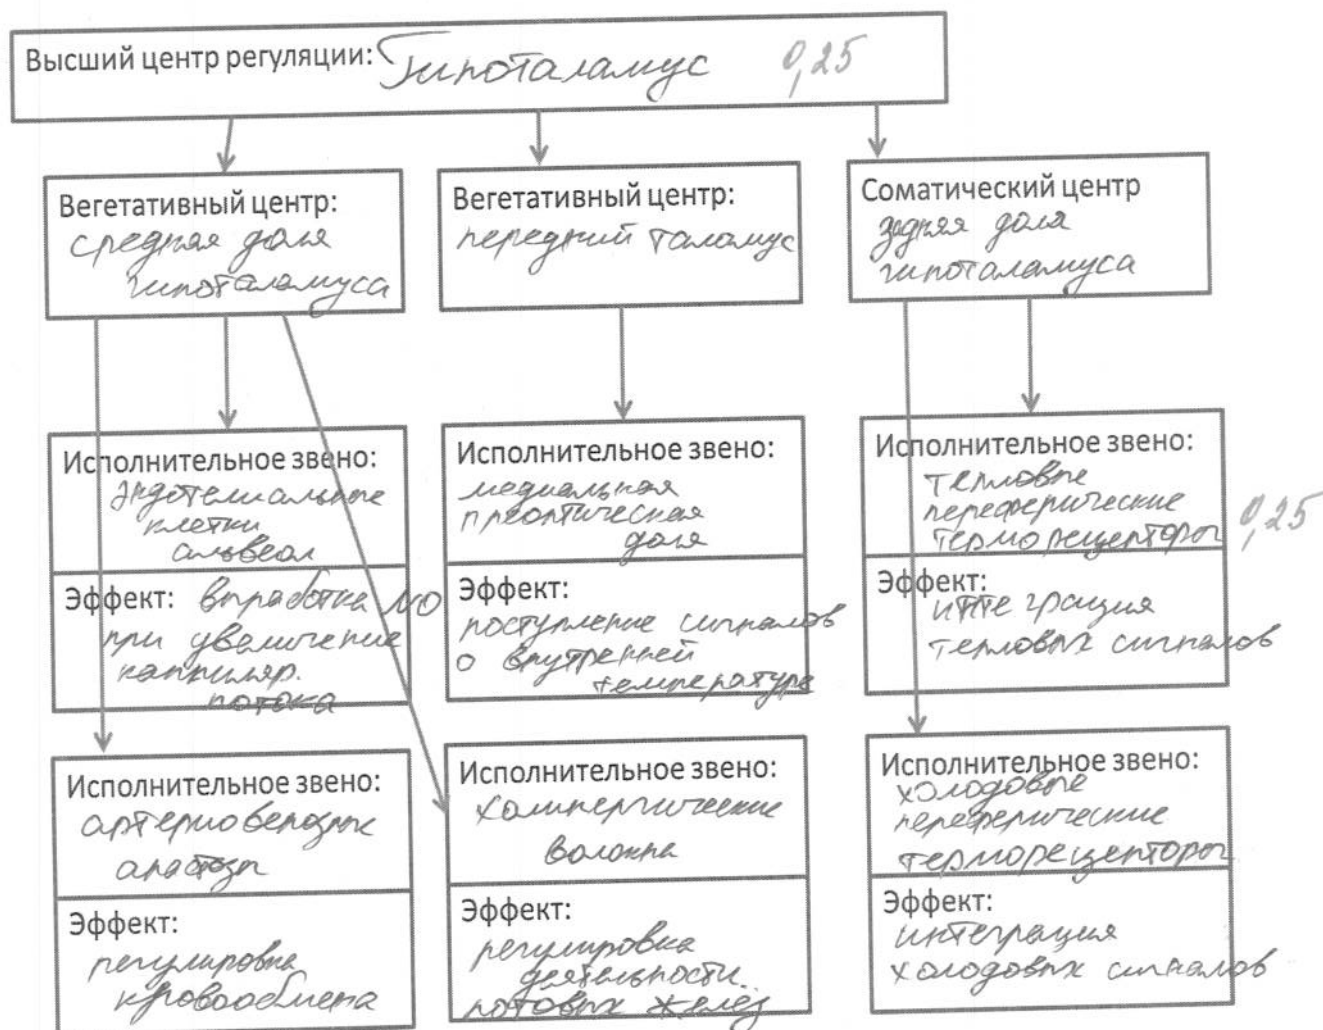 Высший центр регуляции: Гипоталамус 0,25
Вегетативный центр:
средняя доля
гипоталамуса
Вегетативный центр:
передний таламус
Соматический центр
задняя доля
гипоталамуса
Исполнительное звено:
эндотелиальные
клетки
альвеол
Эффект: выработка NO
при увеличение
капиляр.
потока
Исполнительное звено:
медиальная
преоптическая
доля
Эффект:
поступление сигналов
о внутренней
температуре
Исполнительное звено:
тепловые
переферические
терморецепторы 0,25
Эффект:
интеграция
тепловых сигналов
Исполнительное звено:
артериовенозные
Эффект:
регулировка
кровообмена
Исполнительное звено:
холинергические
волокна
Эффект:
регулировка
деятельности
потовых желез
Исполнительное звено:
холодовые
переферические
терморецепторы
Эффект:
интеграция
холодовых сигналов